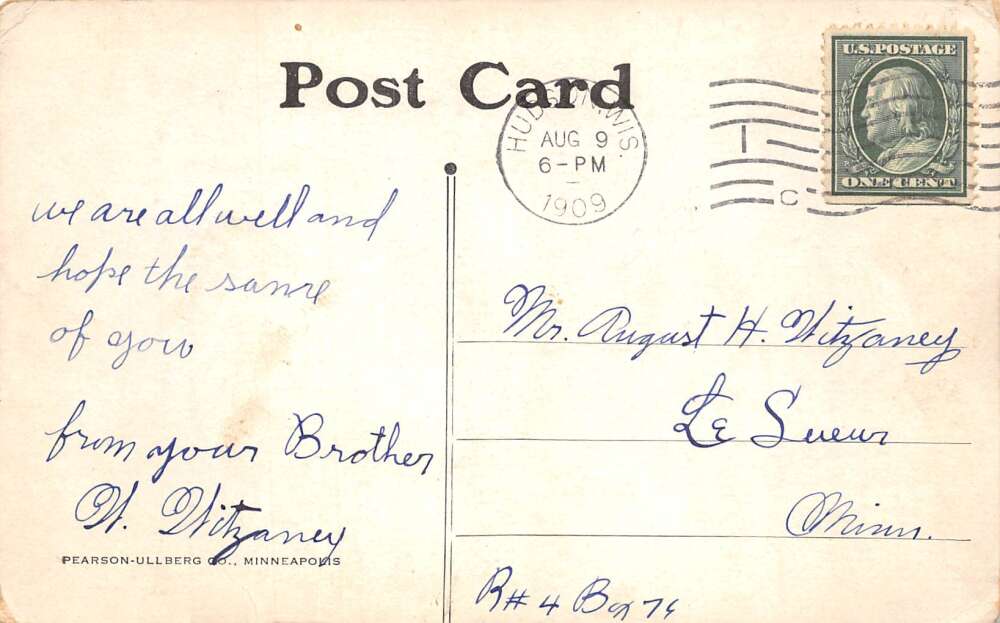 Post Card
HUDSON, WIS.
AUG 9
6-PM
1909
C
U.S. POSTAGE
ONE CENT
we are all well and
hope the same
of you
from your Brother
W. Witzaney
PEARSON-ULLBERG CO., MINNEAPOLIS
Mr. August H. Witzaney
Le Sueur
Minn.
R # 4 Box